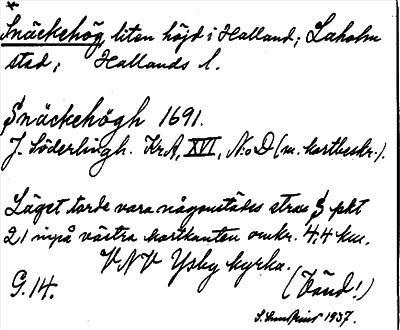 *
Snäckehög, liten höjd i Halland; Laholm
stad; Hallands l.
Snäckehögh 1691.
J. Söderlingh. KrA, XVI, N:o D (m. kartbeskr.).
Läget torde vara någonstädes strax S pkt
21 inpå västra kartkanten omkr. 4,4 km.
VNV Ysby kyrka.
G. 14. (Vänd!)
1937.